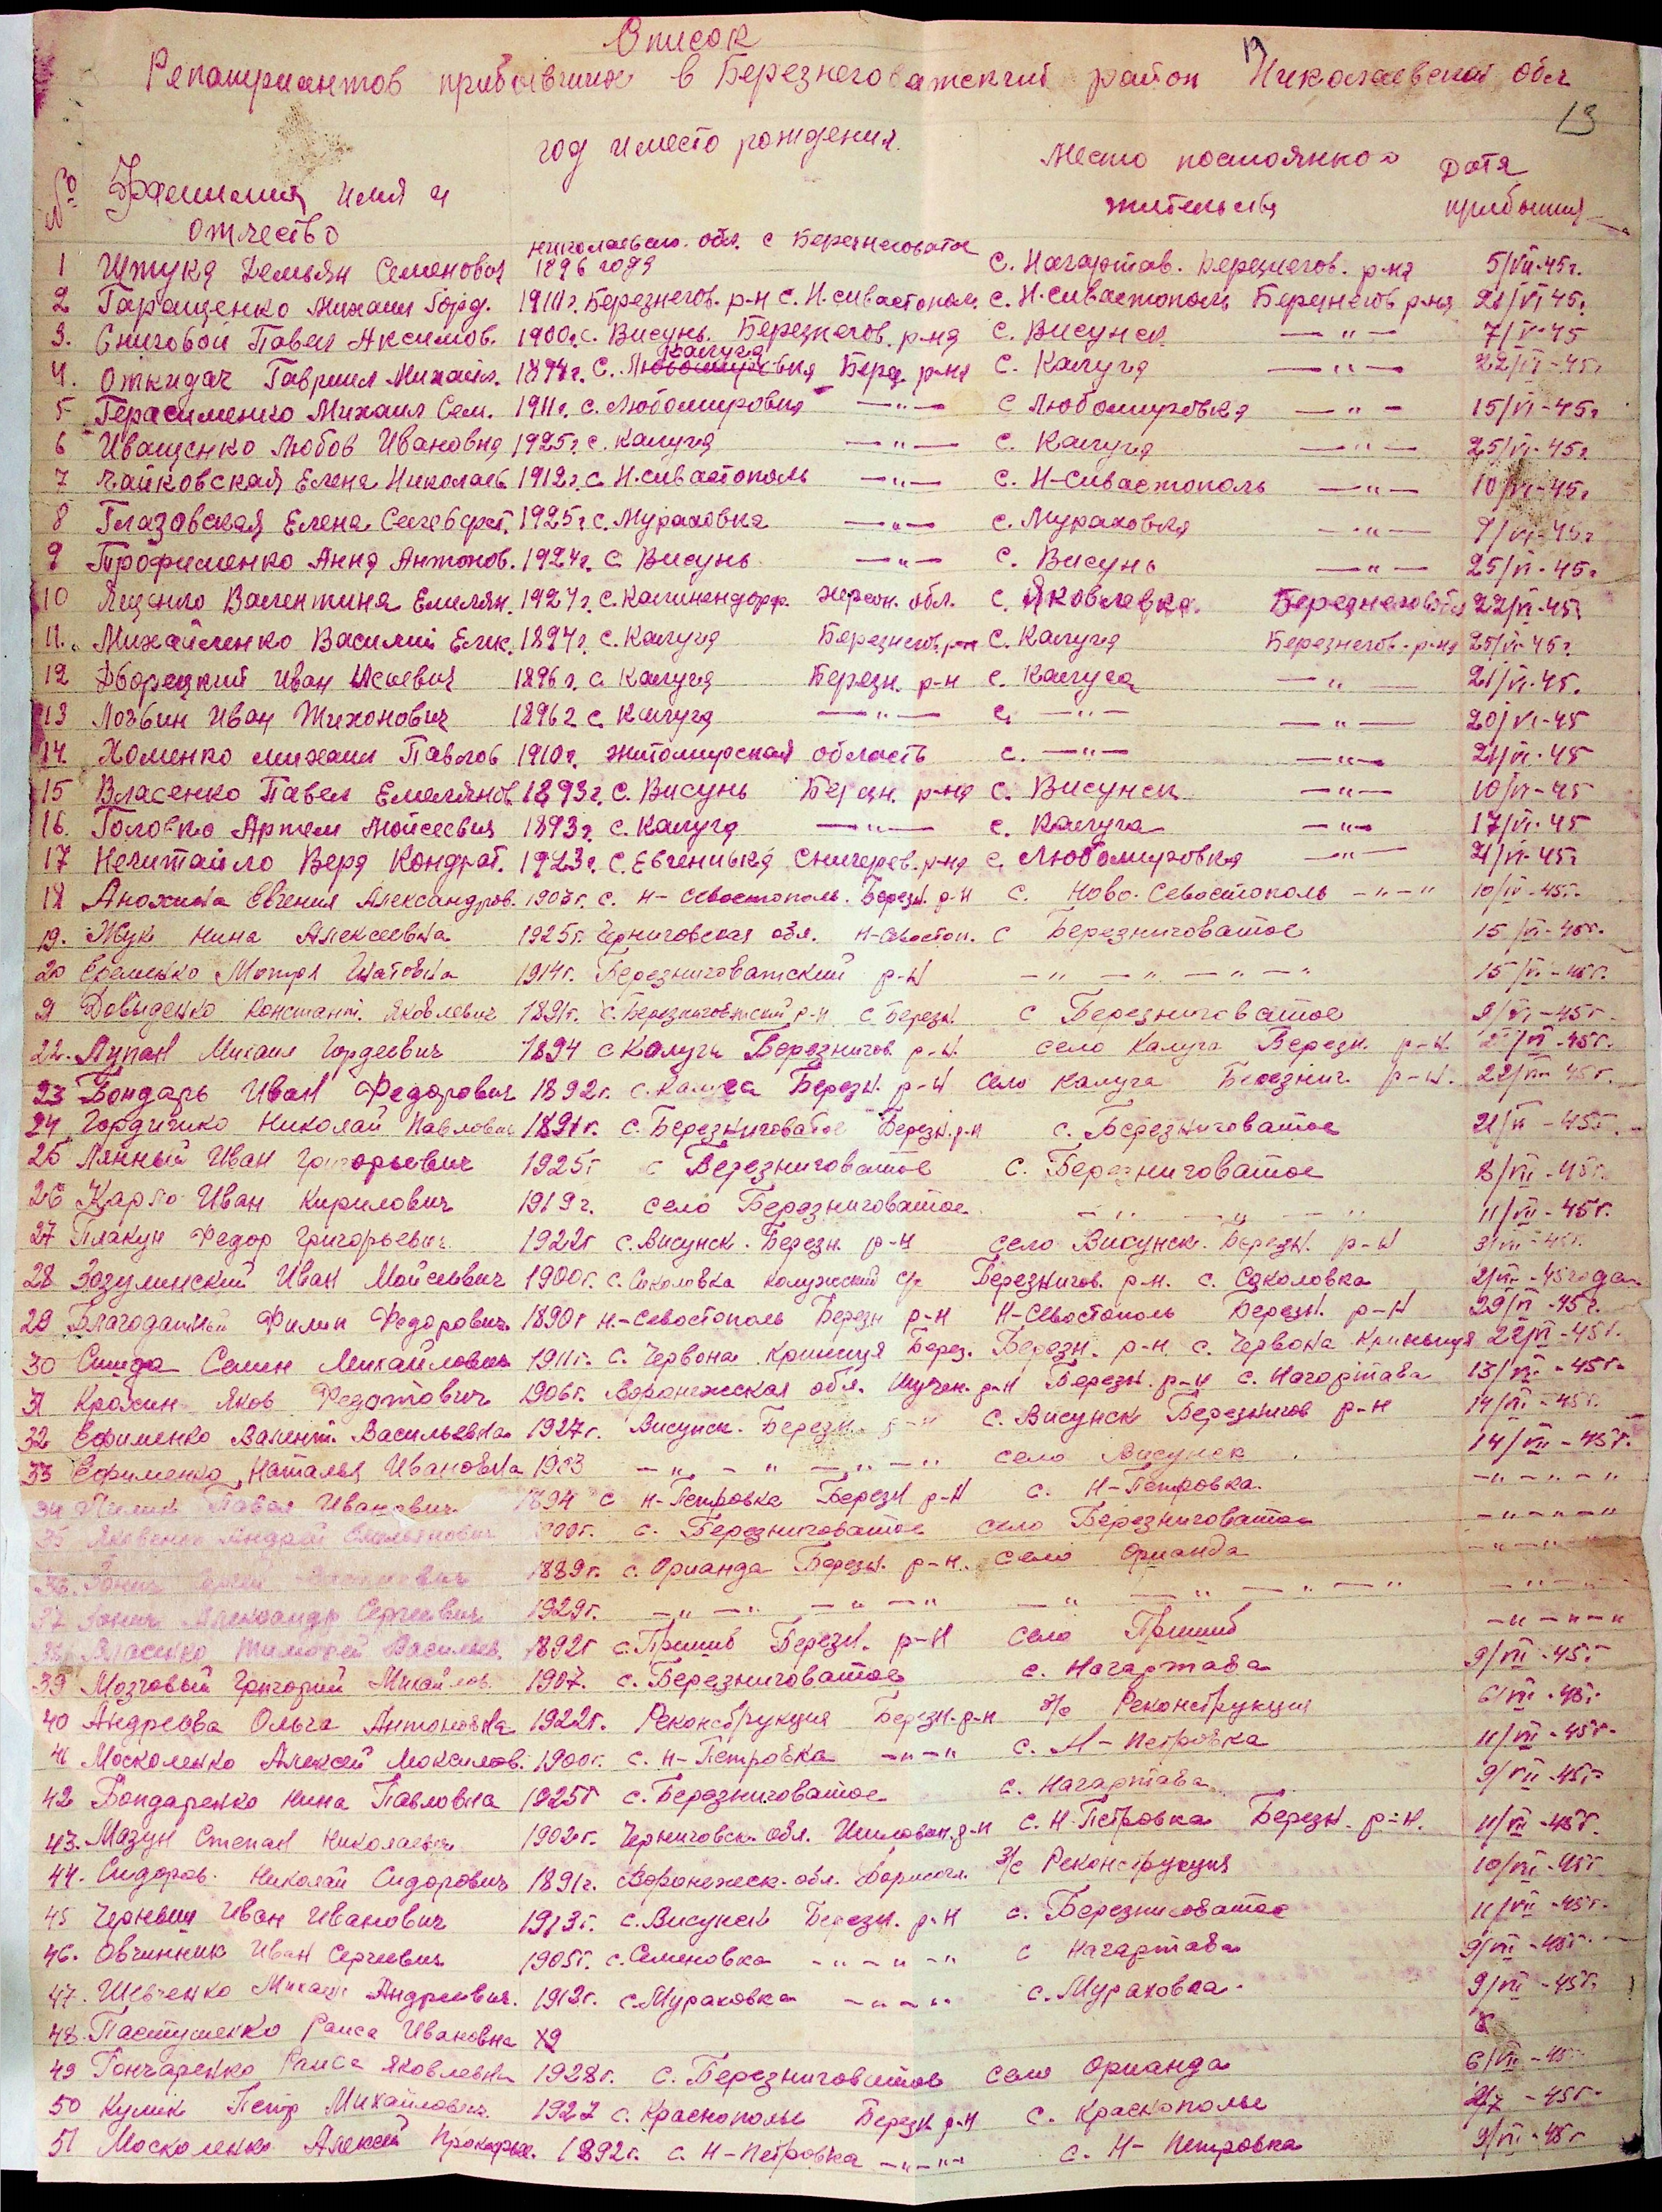 Список
Репатриантов прибывших в Березнеговатский район Николаевской обл
13
год и место рождения.
№ Фамилия имя и отчество
Место постоянного жительства
Дата прибытия
николаевск. обл. с Березнеговатое
1 Штука Демьян Семенович 1896 года с. Нагартав. Березнегов. р-на 5/VII-45г.
2 Гаращенко Михаил Горд. 1911г. Березнегов. р-н с. Н.сивастопол. с. Н.сивастополь Березнегов р-на 21/VI 45г.
3. Сниговой Павел Аксимов. 1900г. с. Висунь. Березнегов. р-на с. Висунск —"— 7/VI-45
Калуга
4. Откидач Гавриил Михайл. 1894г. с. Любомировка Берез. р-на с. Калуга —"— 22/VI-45г
5 Герасименко Михаил Сем. 1911г. с. Любомировка —"— с Любомировка —"— 15/VI-45г
6 Иващенко Любов Ивановна 1925г. с. Калуга —"— с. Калуга —"— 25/VI-45г.
7 Чайковская Елена Николаев 1912г. с Н.сивастополь —"— с. Н-Сивастополь —"— 10/VI-45г.
8 Глазовская Елена 1925г с. Мураховка —"— с. Мураховка —"— 9/VI-45г
9 Трофименко Анна Антонов. 1924г. с Висунь —"— с. Висунь —"— 25/VI-45г
10 Яценко Валентина Емелян. 1924г. с. Калининдорф. херсон. обл. с. Яковлевка. 22/VI-45г
11. Михайленко Василий Елик. 1894г. с. Калуга Березнегов. р-н с. Калуга Березнегов. р-на 25/VI-45г.
12 Дворецкий Иван Исаевич 1896г. с Калуга Березн. р-н с. Калуга —"— 21/VI-45.
13 Лозбин Иван Тихонович 1896г с. Калуга —"— с. —"— —"— 20/VI-45
14. Хоменко михаил Павлов 1910г. житомирская область с. —"— —"— 21/VI-45
15 Власенко Павел Емелянов. 1893г. с. Висунь Березн. р-на с. Висунск —"— 10/VI-45
16. Головко Артем Мойсеевич 1893г. с. Калуга —"— с. Калуга —"— 17/VI-45
17 Нечитайло Вера Кондрат. 1923г. с. Евгеньевка Снигерев. р-на с. Любомировка —"— 21/VI-45г
18 Анохина Евгения Александров. 1907г. с. Н-Севостополь. Березн. р-н с. Ново-Севостополь -"-" 10/VI-45г.
19. Жук Нина Алексеевна 1925г. Черниговская обл. Н-Севостоп. с Березниговатое 15/VI-45г.
20 Еременко Мотря Игнатовна 1914г. Березниговатский р-н -"-"-"-" 15/VI-45г.
21 Довыденко Констант. Яковлевич 1891г. с. Березниговатский р-н с Березн. с Березниговатое 9/VI-45г.
22. Лупан Михаил Гордеевич 1894 с Калуга Березнигов. р-н. село Калуга Березн. р-н.
23 Бондарь Иван Федорович 1892г. с. Калуга Березн. р-н Село Калуга Березниг. р-н. 22/VI-45г.
24 Гордиенко Николай Павлович 1891г. с. Березниговатое Березн. р-н с. Березниговатое 21/VI-45г.
25 Лянный Иван Григорьевич 1925г с Березниговатое с. Березниговатое 8/VII-45г.
26 Карго Иван Кирилович 1919г. село Березниговатое -"-"-" 11/VII-45г.
27 Плакун Федор Григорьевич 1922г с. Висунск. Березн. р-н село Висунск. Березн. р-н 3/VII-45г.
28 Зозулинский Иван Мойсеевич 1900г. с. Соколовка калужский с/с Березнигов. р.н. с. Соколовка 2/VII-45 года.
29 Благодатный Филип Федорович 1890г н.-Севостополь Березн р-н Н-Севостополь Березн. р-н 29/VI-45г.
30 Семен Михайлович 1911г. с. Червона криниця Берез. Березн. р-н. с. Червона Криныця 22/VI-45г.
31 Крохин Яков Федотович 1906г. Воронежская обл. р-н Березн. р-н с. Нагартава 13/VII-45г.
32 Ефименко Валент. Васильевна 1927г. Висунск. Березн р-н с. Висунск Березнигов р-н 14/VII-45г.
33 Ефименко Наталья Ивановна 1903 -"-"-"-" село Висунск 14/VII-45г.
34 Павел Иванович 1894 с Н-Петровка Березн р-н с. Н-Петровка. -"-"-"
35 Яковенко Андрей Емельянович 1900г. с. Березниговатое село Березниговатое -"-"-"
36. 1889г. с. Орианда Березн. р-н. село Орианда -"-"-"
37 Александр Сергеевич 1929г. -"-"-"-" -"-"-"-" -"-"
38 Власенко Тимофей Васильев. 1892г с. Пришиб Березн. р-н село Пришиб -"-"-"
39 Мозговый Григорий Михайлов. 1907. с. Березниговатое с. Нагартава 9/VII-45г
40 Андреева Ольга Антоновна 1922г. Реконструкция Березн. р-н з/с Реконструкция 6/VII-45г.
41 Москоленко Алексей Максимов. 1900г. с. Н-Петровка -"-" с. Н-Петровка 11/VII-45г.
42 Бондаренко Нина Павловна 1925г с. Березниговатое с. Нагартава 9/VII-45г.
43. Мазун Степан Николаевич 1902г. Черниговск. обл. р-н с. Н-Петровка Березн. р-н. 11/VII-45г.
44. Сидоров. Николай Сидорович 1891г. Воронежск. обл. з/с Реконструкция 10/VII-45г
45 Черныш Иван Иванович 1913г. с. Висунск Березн. р-н с. Березниговатое 11/VII-45г.
46. Овчинник Иван Сергеевич 1905г. с. Семеновка -"-"-" с Нагартава 9/VII-45г.
47. Шевченко Михаил Андреевич. 1913г. с. Мураховка -"-"- с. Мураховка. 9/VII-45г.
48. Пастушенко Раиса Ивановна
49 Гончаренко Раиса Яковлевна 1928г. с. Березниговатое село Орианда 6/VII-45г
50 Кулик Петр Михайлович. 1927 с. Краснополье Березн р-н с. Краснополье 2/7-45г.
51 Москаленко Алексей Прокофье. 1892г. с. Н-Петровка -"-"- с. Н-Петровка 9/VII-45г